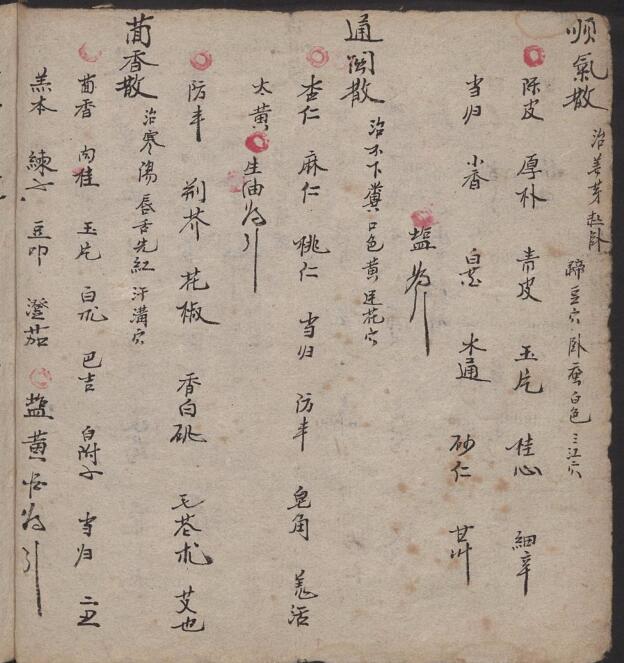 順氣散 治姜芽起卧 蹄豆穴 卧蚕白色 三江穴
陈皮 厚朴 青皮 玉片 桂心 細辛
当归 小香 白芷 木通 砂仁 甘草
塩為引
通関散 治不下糞口色黄 莲花穴
杏仁 麻仁 桃仁 当归 防丰 皂角 羌活
大黄 生油為引
防丰 荆芥 花椒 香白 苍术 艾也
茴香散 治寒傷唇舌先紅 汗溝穴
茴香 肉桂 玉片 白朮 巴吉 白附子 当归 二丑
羔本 練六 豆叩 澄茄 塩黄 為引